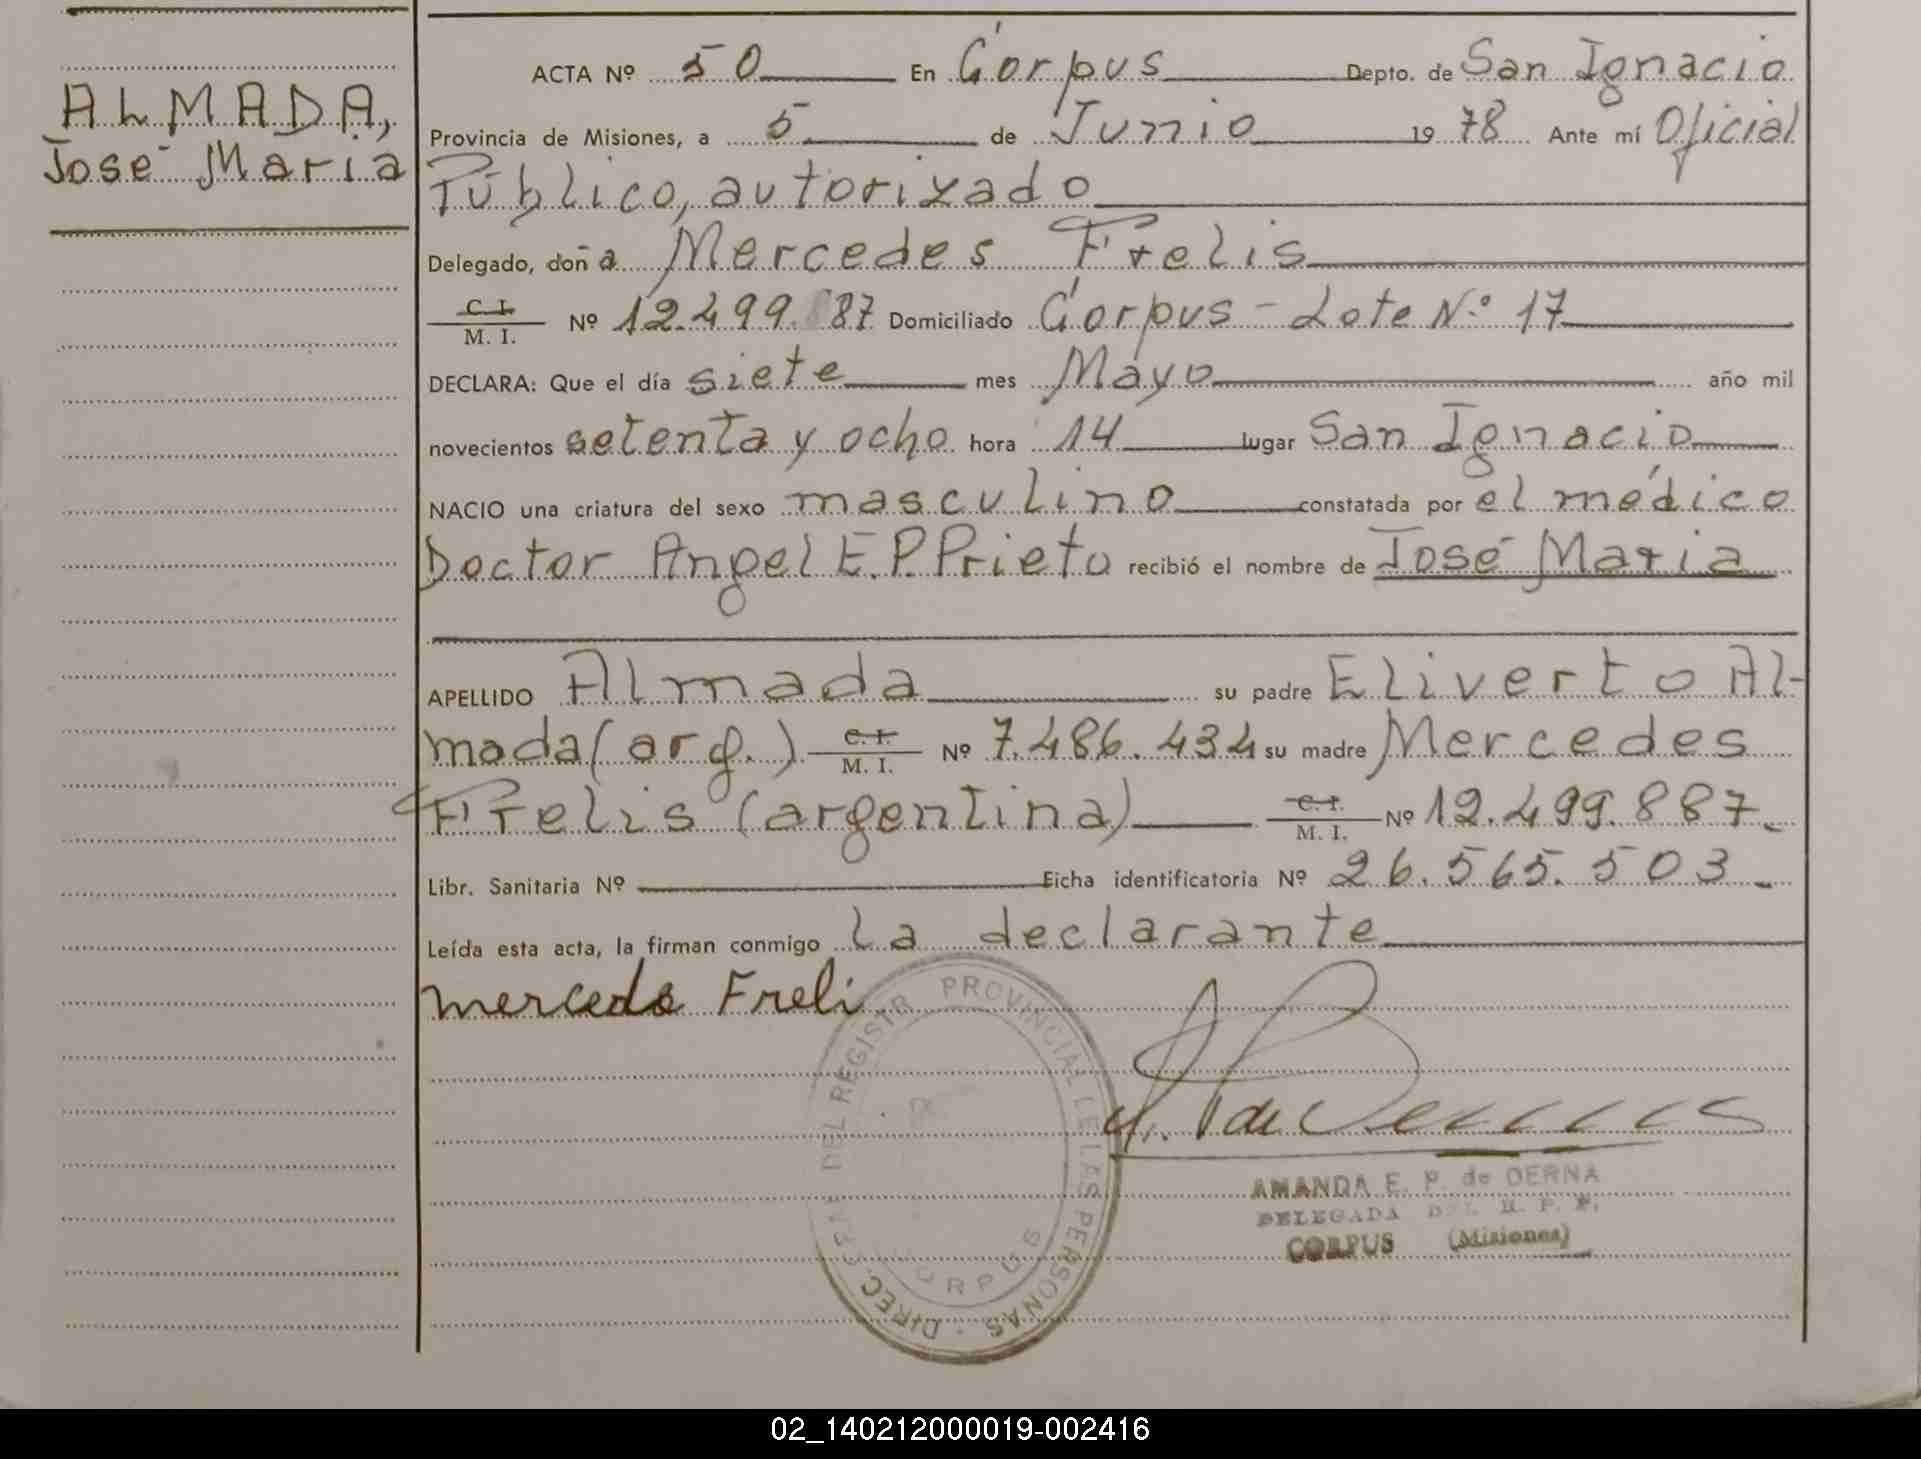 ALMADA,
José Maria
ACTA Nº 50 En Corpus Depto. de San Ignacio
Provincia de Misiones, a 5 de Junio 19 78 Ante mí Oficial
Público, autorizado
Delegado, doña Mercedes Frelis
C. I.
M. I. Nº 12.499. 87 Domiciliado Corpus - Lote N.º 17
DECLARA: Que el día siete mes Mayo año mil
novecientos setenta y ocho hora 14 lugar San Ignacio
NACIO una criatura del sexo masculino constatada por el médico
Doctor Angel E.P. Prieto recibió el nombre de José Maria
APELLIDO Almada su padre Eliverto Al-
mada (arg.) C. I. M. I. Nº 7.486.434 su madre Mercedes
Frelis (argentina) C. I. M. I. Nº 12.499.887.
Libr. Sanitaria Nº Ficha identificatoria Nº 26.565.503
Leída esta acta, la firman conmigo la declarante
DEL REGISTR PROVINCIAL DE LAS PERSONAS · DIREC.
CORPUS
AMANDA E. P. de DERNA
DELEGADA DEL R. P. P.
CORPUS (Misiones)
02_140212000019-002416